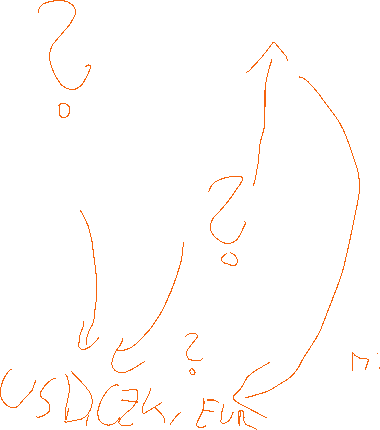 ?
?
?
USD, CZK, EUR